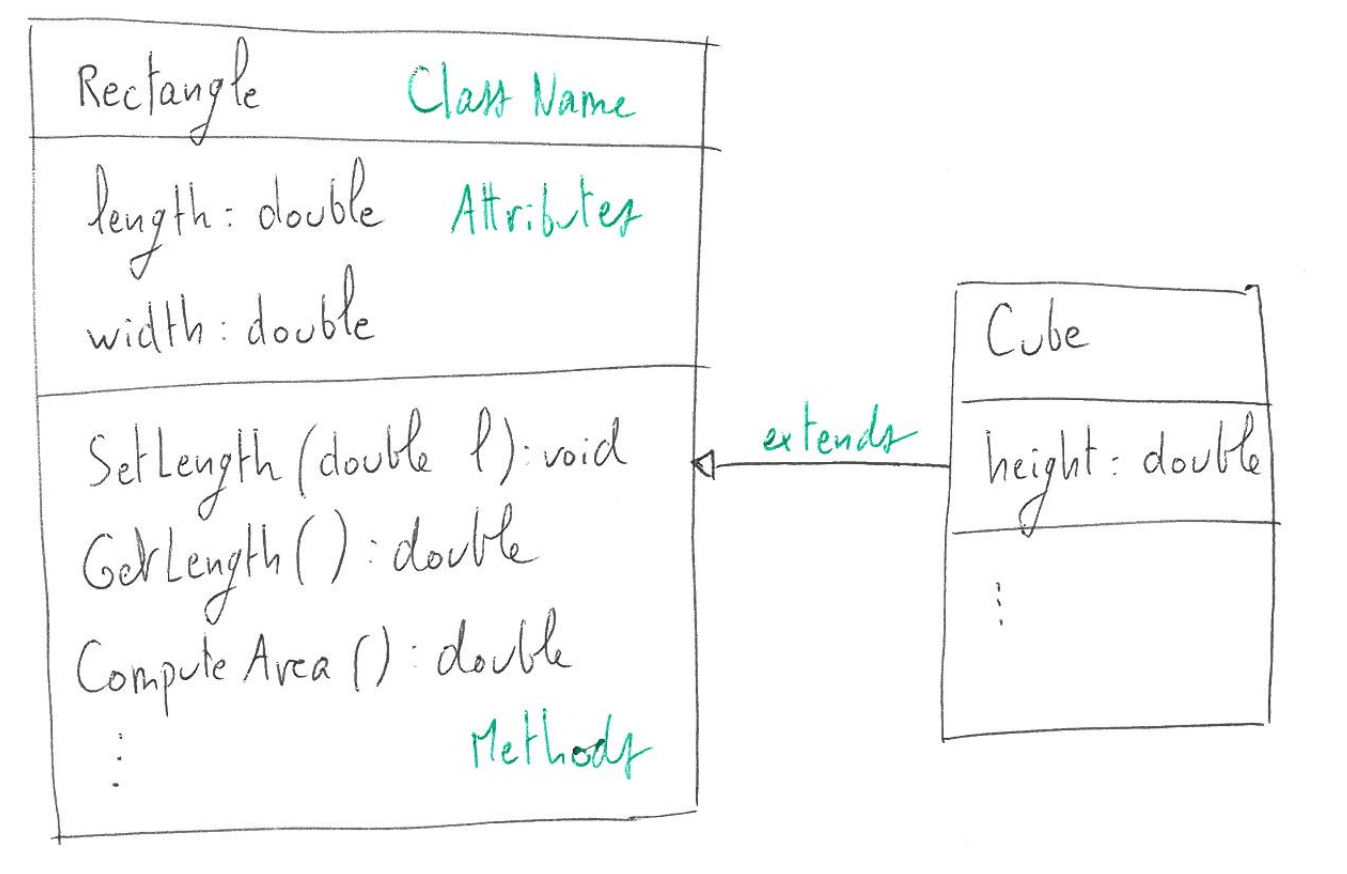 Rectangle Class Name
length : double Attributes
width : double
SetLength (double l) : void
GetLength () : double
ComputeArea () : double
⋮
Methods
extends
Cube
height : double
⋮